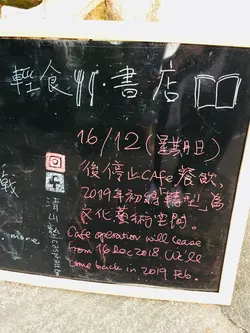 輕食 · 書店
16/12(星期日)
後停止Cafe 餐飲,
2019年初將轉型為
文化藝術空間。
Cafe operation will cease
from 16 Dec 2018 We'll
come back in 2019 Feb.
戰
more